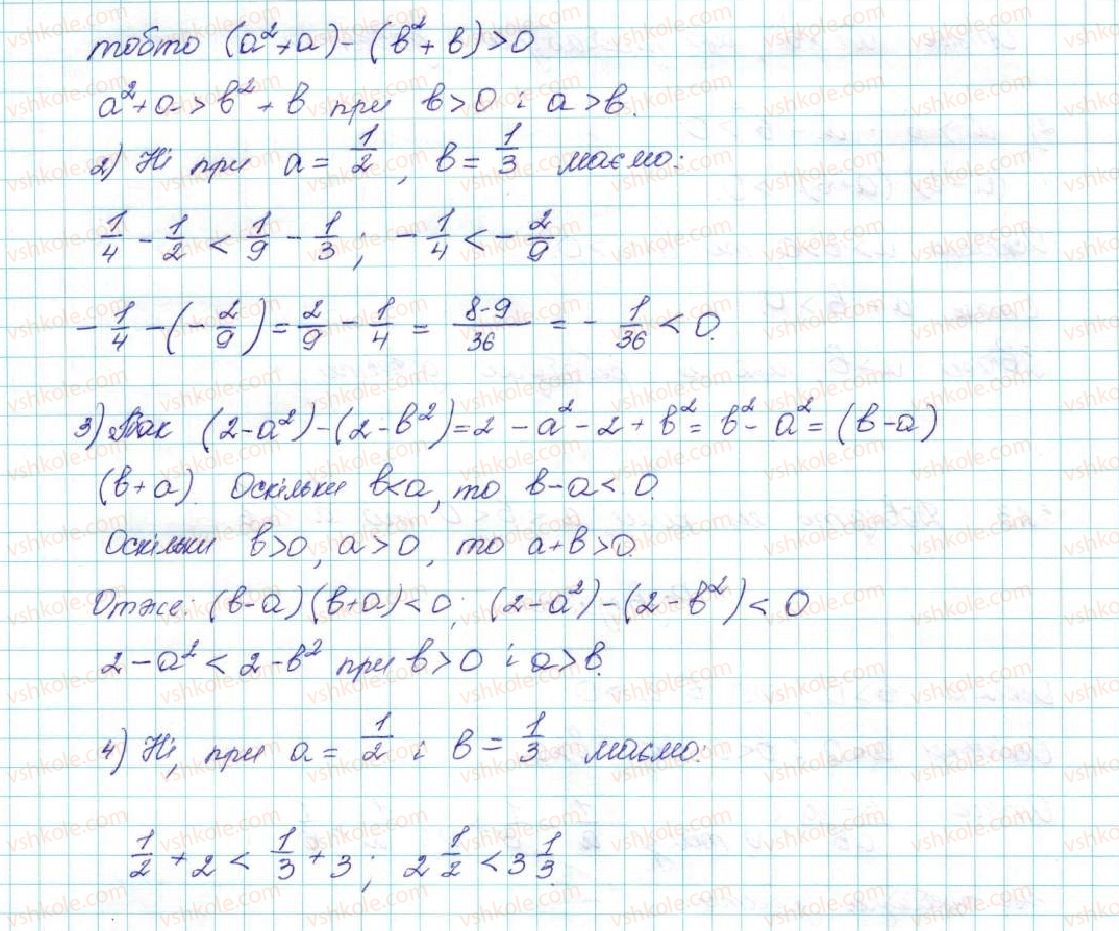 тобто (a²+a)-(в²+в)>0
a²+a>в²+в при в>0 і a>в.
2) Ні при a=1/2, в=1/3 маємо:
1/4-1/2<1/9-1/3; -1/4<-2/9
-1/4-(-2/9)=2/9-1/4=8-9/36=-1/36<0.
3) Так (2-a²)-(2-в²)=2-a²-2+в²=в²-a²=(в-a)
(в+a). Оскільки в<a, то в-a<0.
Оскільки в>0, a>0, то a+в>0.
Отже: (в-a)(в+a)<0; (2-a²)-(2-в²)<0
2-a²<2-в² при в>0 і a>в.
4) Ні, при a=1/2 і в=1/3 маємо:
1/2+2<1/3+3; 2 1/2<3 1/3.